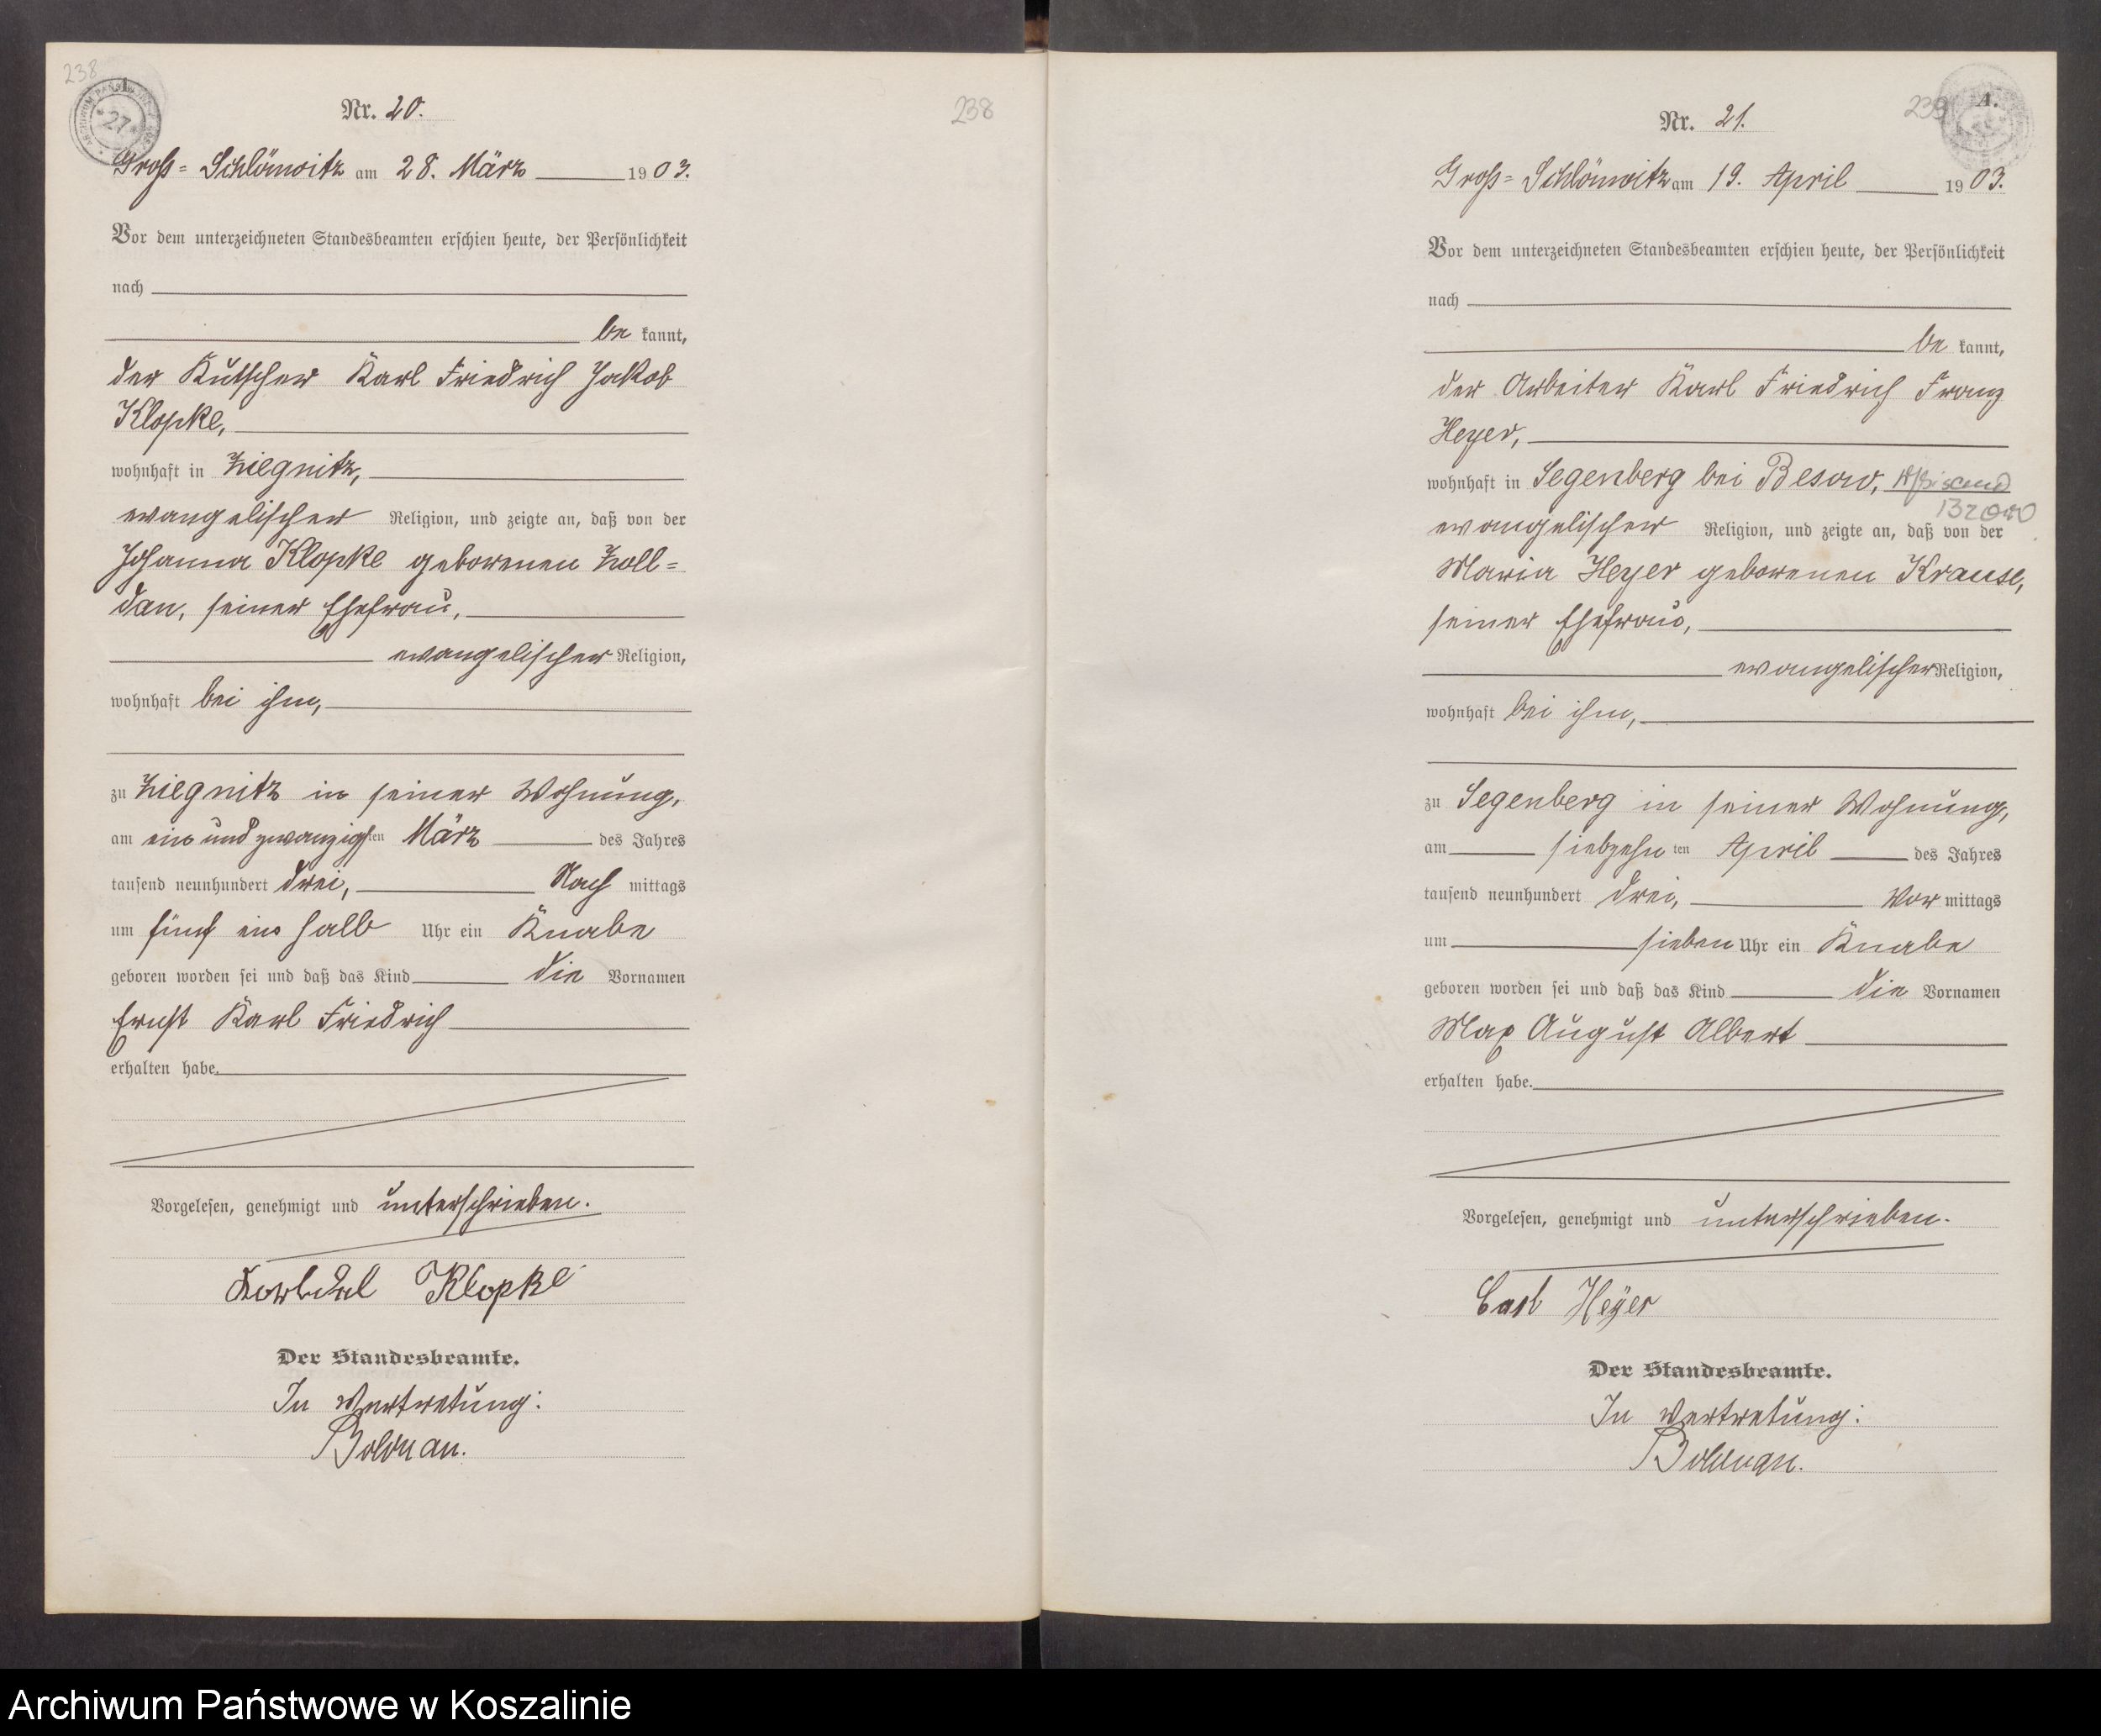 238
Nr. 20.
Groß=Schlönwitz am 28. März 1903.
Vor dem unterzeichneten Standesbeamten erschien heute, der Persönlichkeit
nach
be kannt,
der Kutscher Karl Friedrich Jakob
Klopke,
wohnhaft in Ziegnitz,
evangelischer Religion, und zeigte an, daß von der
Johanna Klopke geborenen Zoll=
dan, seiner Ehefrau,
evangelischer Religion,
wohnhaft bei ihm,
zu Ziegnitz in seiner Wohnung,
am ein und zwanzigsten März des Jahres
tausend neunhundert drei, Nach mittags
um fünf ein halb Uhr ein Knabe
geboren worden sei und daß das Kind die Vornamen
Ernst Karl Friedrich
erhalten habe.
Vorgelesen, genehmigt und unterschrieben.
Klopke
Der Standesbeamte.
In Vertretung:
Bolduan.
238
239
A.
Nr. 21.
Groß=Schlönwitz am 19. April 1903.
Vor dem unterzeichneten Standesbeamten erschien heute, der Persönlichkeit
nach
be kannt,
der Arbeiter Karl Friedrich Franz
Heyer,
wohnhaft in Segenberg bei Besow,
evangelischer Religion, und zeigte an, daß von der
Maria Heyer geborenen Krause,
seiner Ehefrau,
evangelischer Religion,
wohnhaft bei ihm,
zu Segenberg in seiner Wohnung,
am siebzehn ten April des Jahres
tausend neunhundert drei, Vor mittags
um sieben Uhr ein Knabe
geboren worden sei und daß das Kind die Vornamen
Max August Albert
erhalten habe.
Vorgelesen, genehmigt und unterschrieben.
Carl Heyer
Der Standesbeamte.
In Vertretung:
Bolduan.
Archiwum Państwowe w Koszalinie